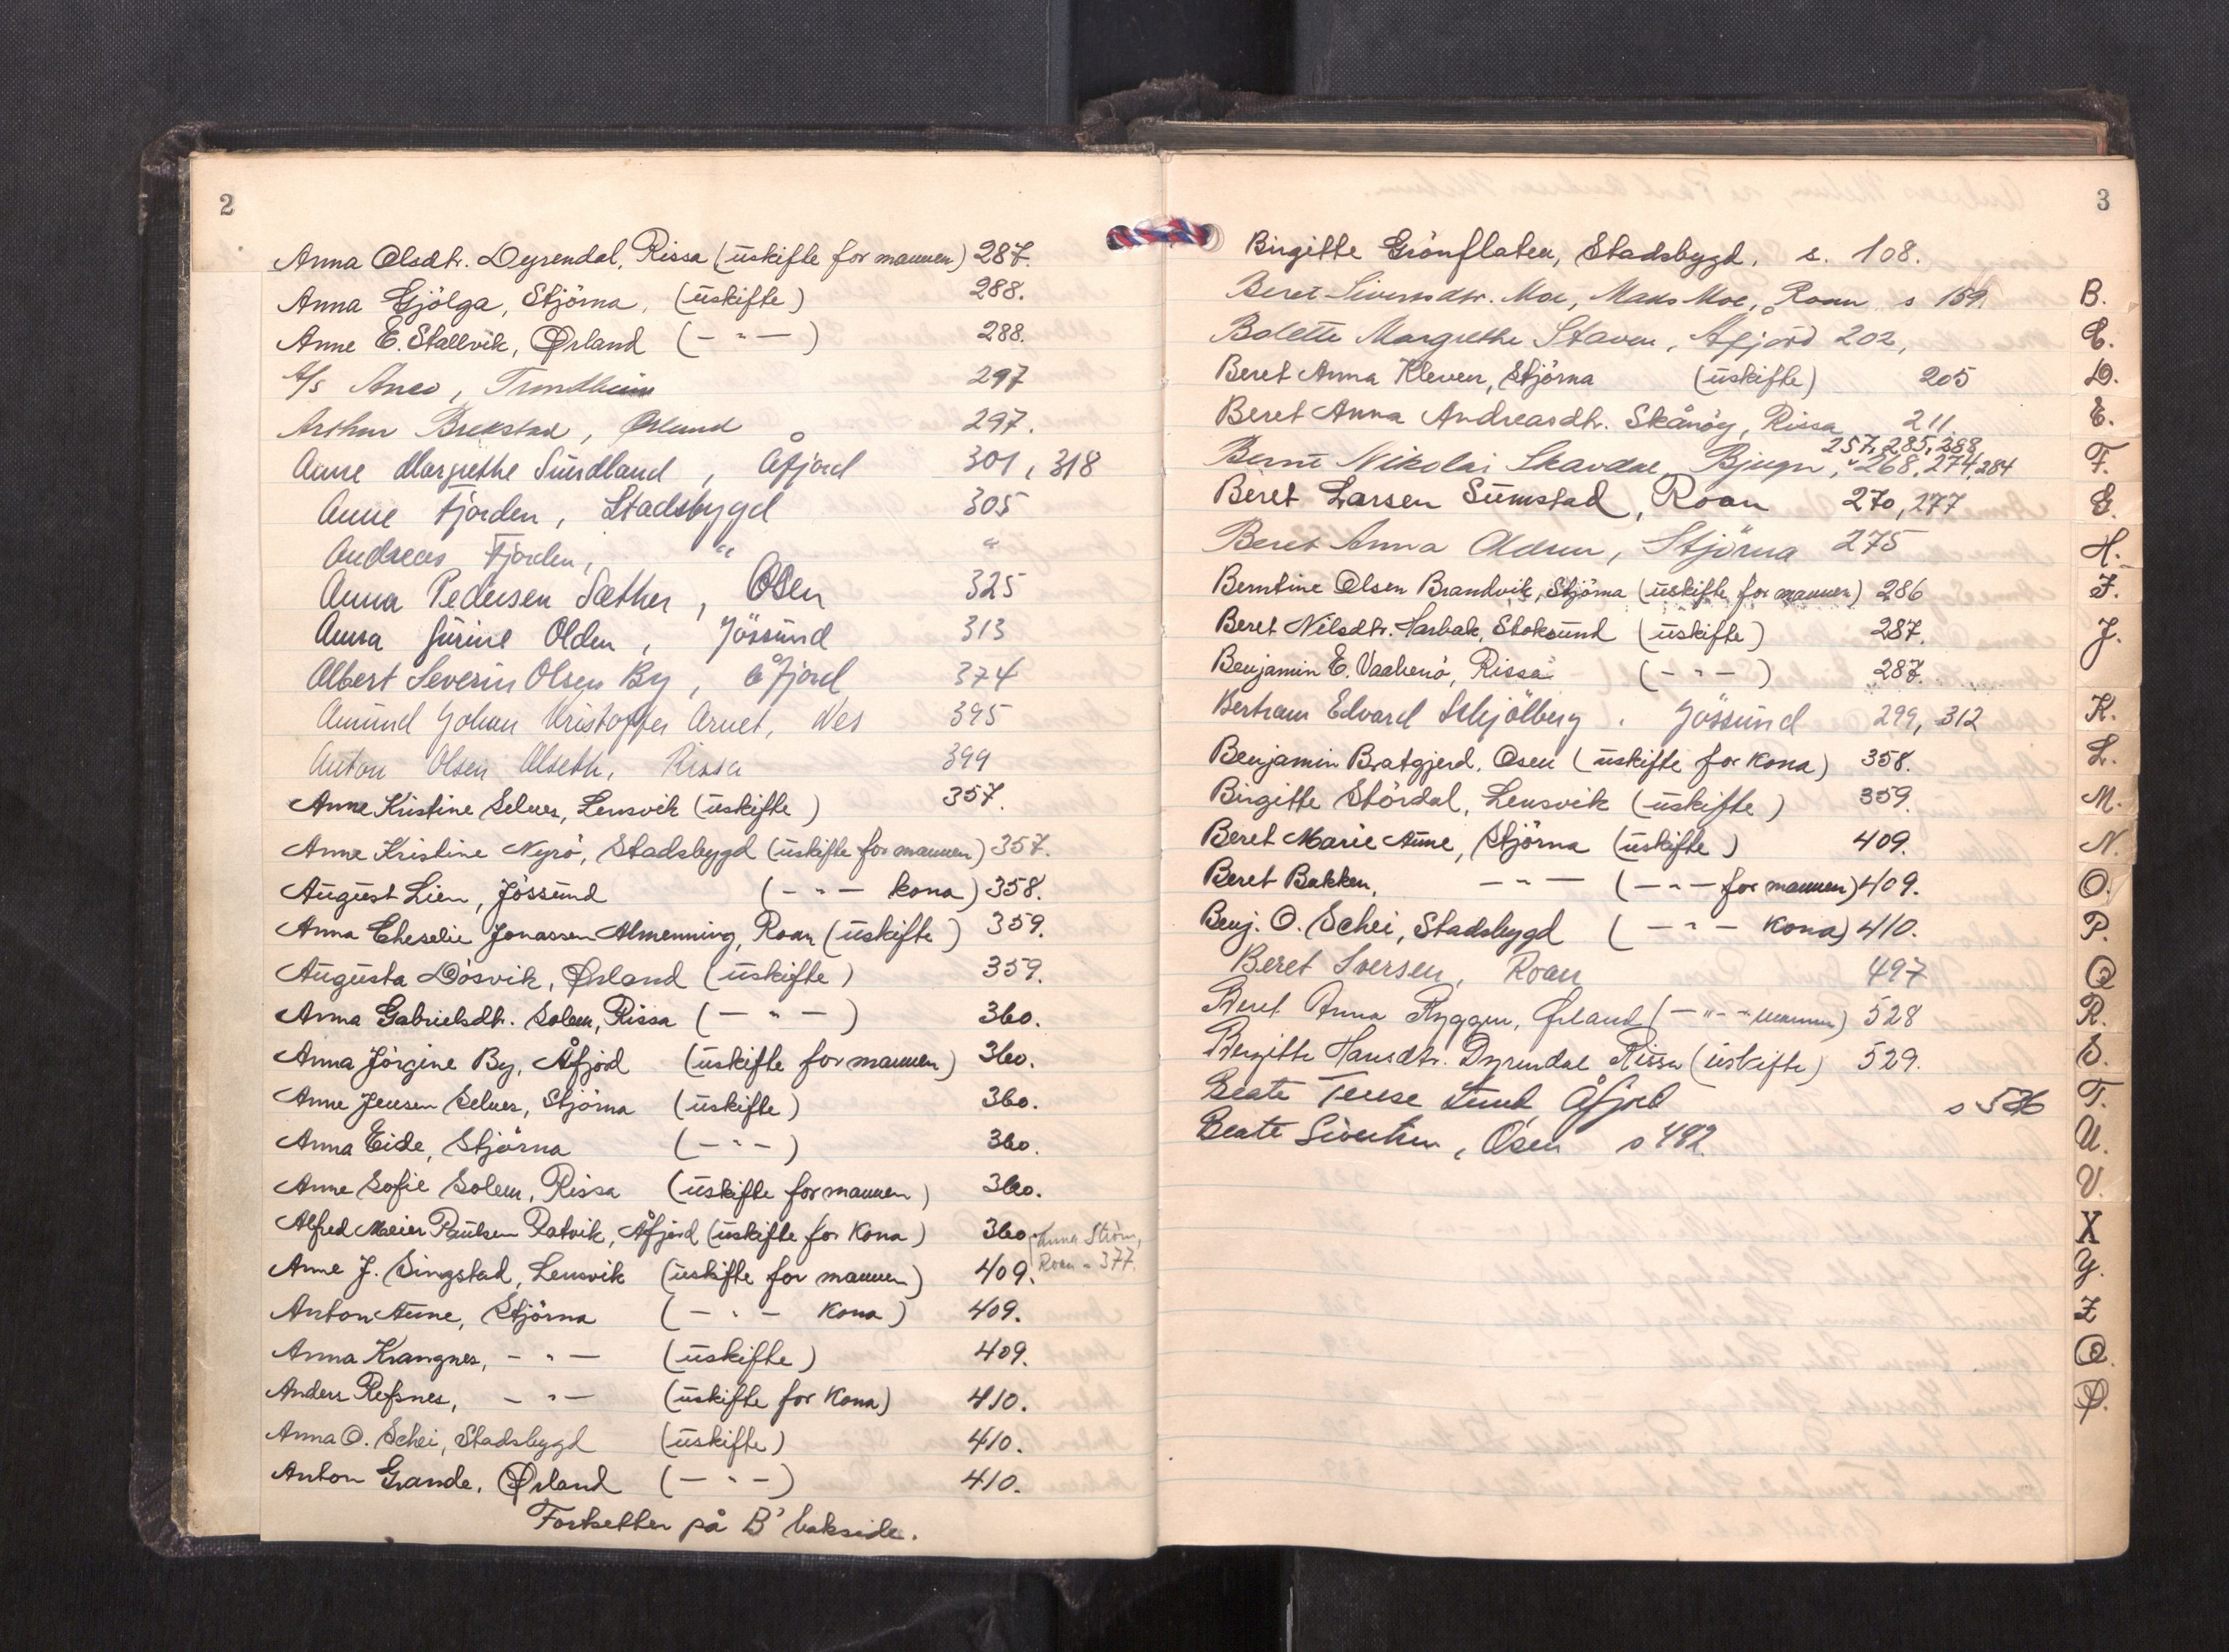 2
Anna Olsdtr. Dyrendal, Rissa (uskifte for mannen) 287.
Anna Gjölga, Stjörna, (uskifte) 288.
Anne E. Stallvik, Ørland (- " -) 288.
A/s Aneo, Trondheim 297
Arthur Brekstad, Ørland 297.
Anne Margrethe Sundland, Åfjord 301, 318
Anne Fjorden, Stadsbygd 305
Andreas Fjorden, " "
Anna Pedersen Sæther, Osen 325
Anna Jurine Olden, Jössund 313
Albert Severin Olsen By, Åfjord 374
Amund Johan Kristoffer Arnet, Nes 395
Anton Olsen Alseth, Rissa 399
Anne Kristine Selnes, Lensvik (uskifte) 357.
Anne Kristine Nyrö, Stadsbygd (uskifte for mannen) 357.
August Lien, Jössund (- " - kona) 358.
Anna Jonassen Almenning, Roan (uskifte) 359.
Augusta Dösvik, Ørland (uskifte) 359.
Anna Gabrielsdtr. Solem, Rissa (- " -) 360.
Anna Jörgine By, Åfjord (uskifte for mannen) 360.
Anne Jensen Selnes, Stjörna (uskifte) 360.
Anna Eide, Stjörna (- " -) 360.
Anne Sofie Solem, Rissa (uskifte for mannen) 360.
Alfred Meier Paulsen Ratvik, Åfjord (uskifte for kona) 360.
Anna Ström,
Roan - 377.
Anne J. Singstad, Lensvik (uskifte for mannen) 409.
Anton Aune, Stjörna (- " - kona) 409.
Anna Krangnes, - " - (uskifte) 409.
Anders Refsnes, - " - (uskifte for kona) 410.
Anna O. Schei, Stadsbygd (uskifte) 410.
Anton Grande, Ørland (- " -) 410.
Fortsetter på B' bakside.
3
Birgitte Grönflaten, Stadsbygd, s. 108.
Beret Sivertsdtr. Moe, Maks Moe, Roan s 159.
Bolette Margrethe Staven, Åfjord 202,
Beret Anna Kleven, Stjörna (uskifte) 205
Beret Anna Andreasdtr. Skånöy, Rissa 211.
257, 285, 288
Bernt Nikolai Skavdal, Bjugn, 268, 274, 284
Beret Larsen Sumstad, Roan 270, 277
Beret Anna Oldren, Stjörna 275
Berntine Olsen Brandvik, Stjörna (uskifte for mannen) 286
Beret Nilsdtr. Harbak, Stoksund (uskifte) 287.
Benjamin E. Vaahenö, Rissa (- " -) 287.
Bertram Edvard Schjölberg, Jössund 299, 312
Benjamin Bratgjerd, Osen (uskifte for kona) 358.
Birgitte Stördal, Lensvik (uskifte) 359.
Beret Marie Aune, Stjörna (uskifte) 409.
Beret Bakken, - " - (- " - for mannen) 409.
Benj. O. Schei, Stadsbygd (- " - kona) 410.
Beret Iversen, Roan 497
Beret Anna Ryggen, Ørland (- " - mannen) 528
Birgitte Hansdtr. Dyrendal Rissa (uskifte) 529.
Beate Terese Lund Åfjord s 536
Beate Sivertsen, Osen s 482.
B.
C.
D.
E.
F.
G.
H.
I.
J.
K.
L.
M.
N.
O.
P.
Q
R.
S.
T.
U.
V.
X
Y.
Z
Ø.